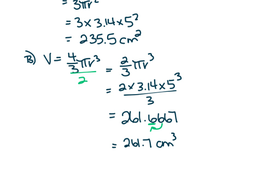 = 3πr²
= 3 x 3.14 x 5²
= 235.5 cm²
B) V = 4/3 πr³ / 2 = 2/3 πr³
= 2 x 3.14 x 5³ / 3
= 261.6667
= 261.7 cm³